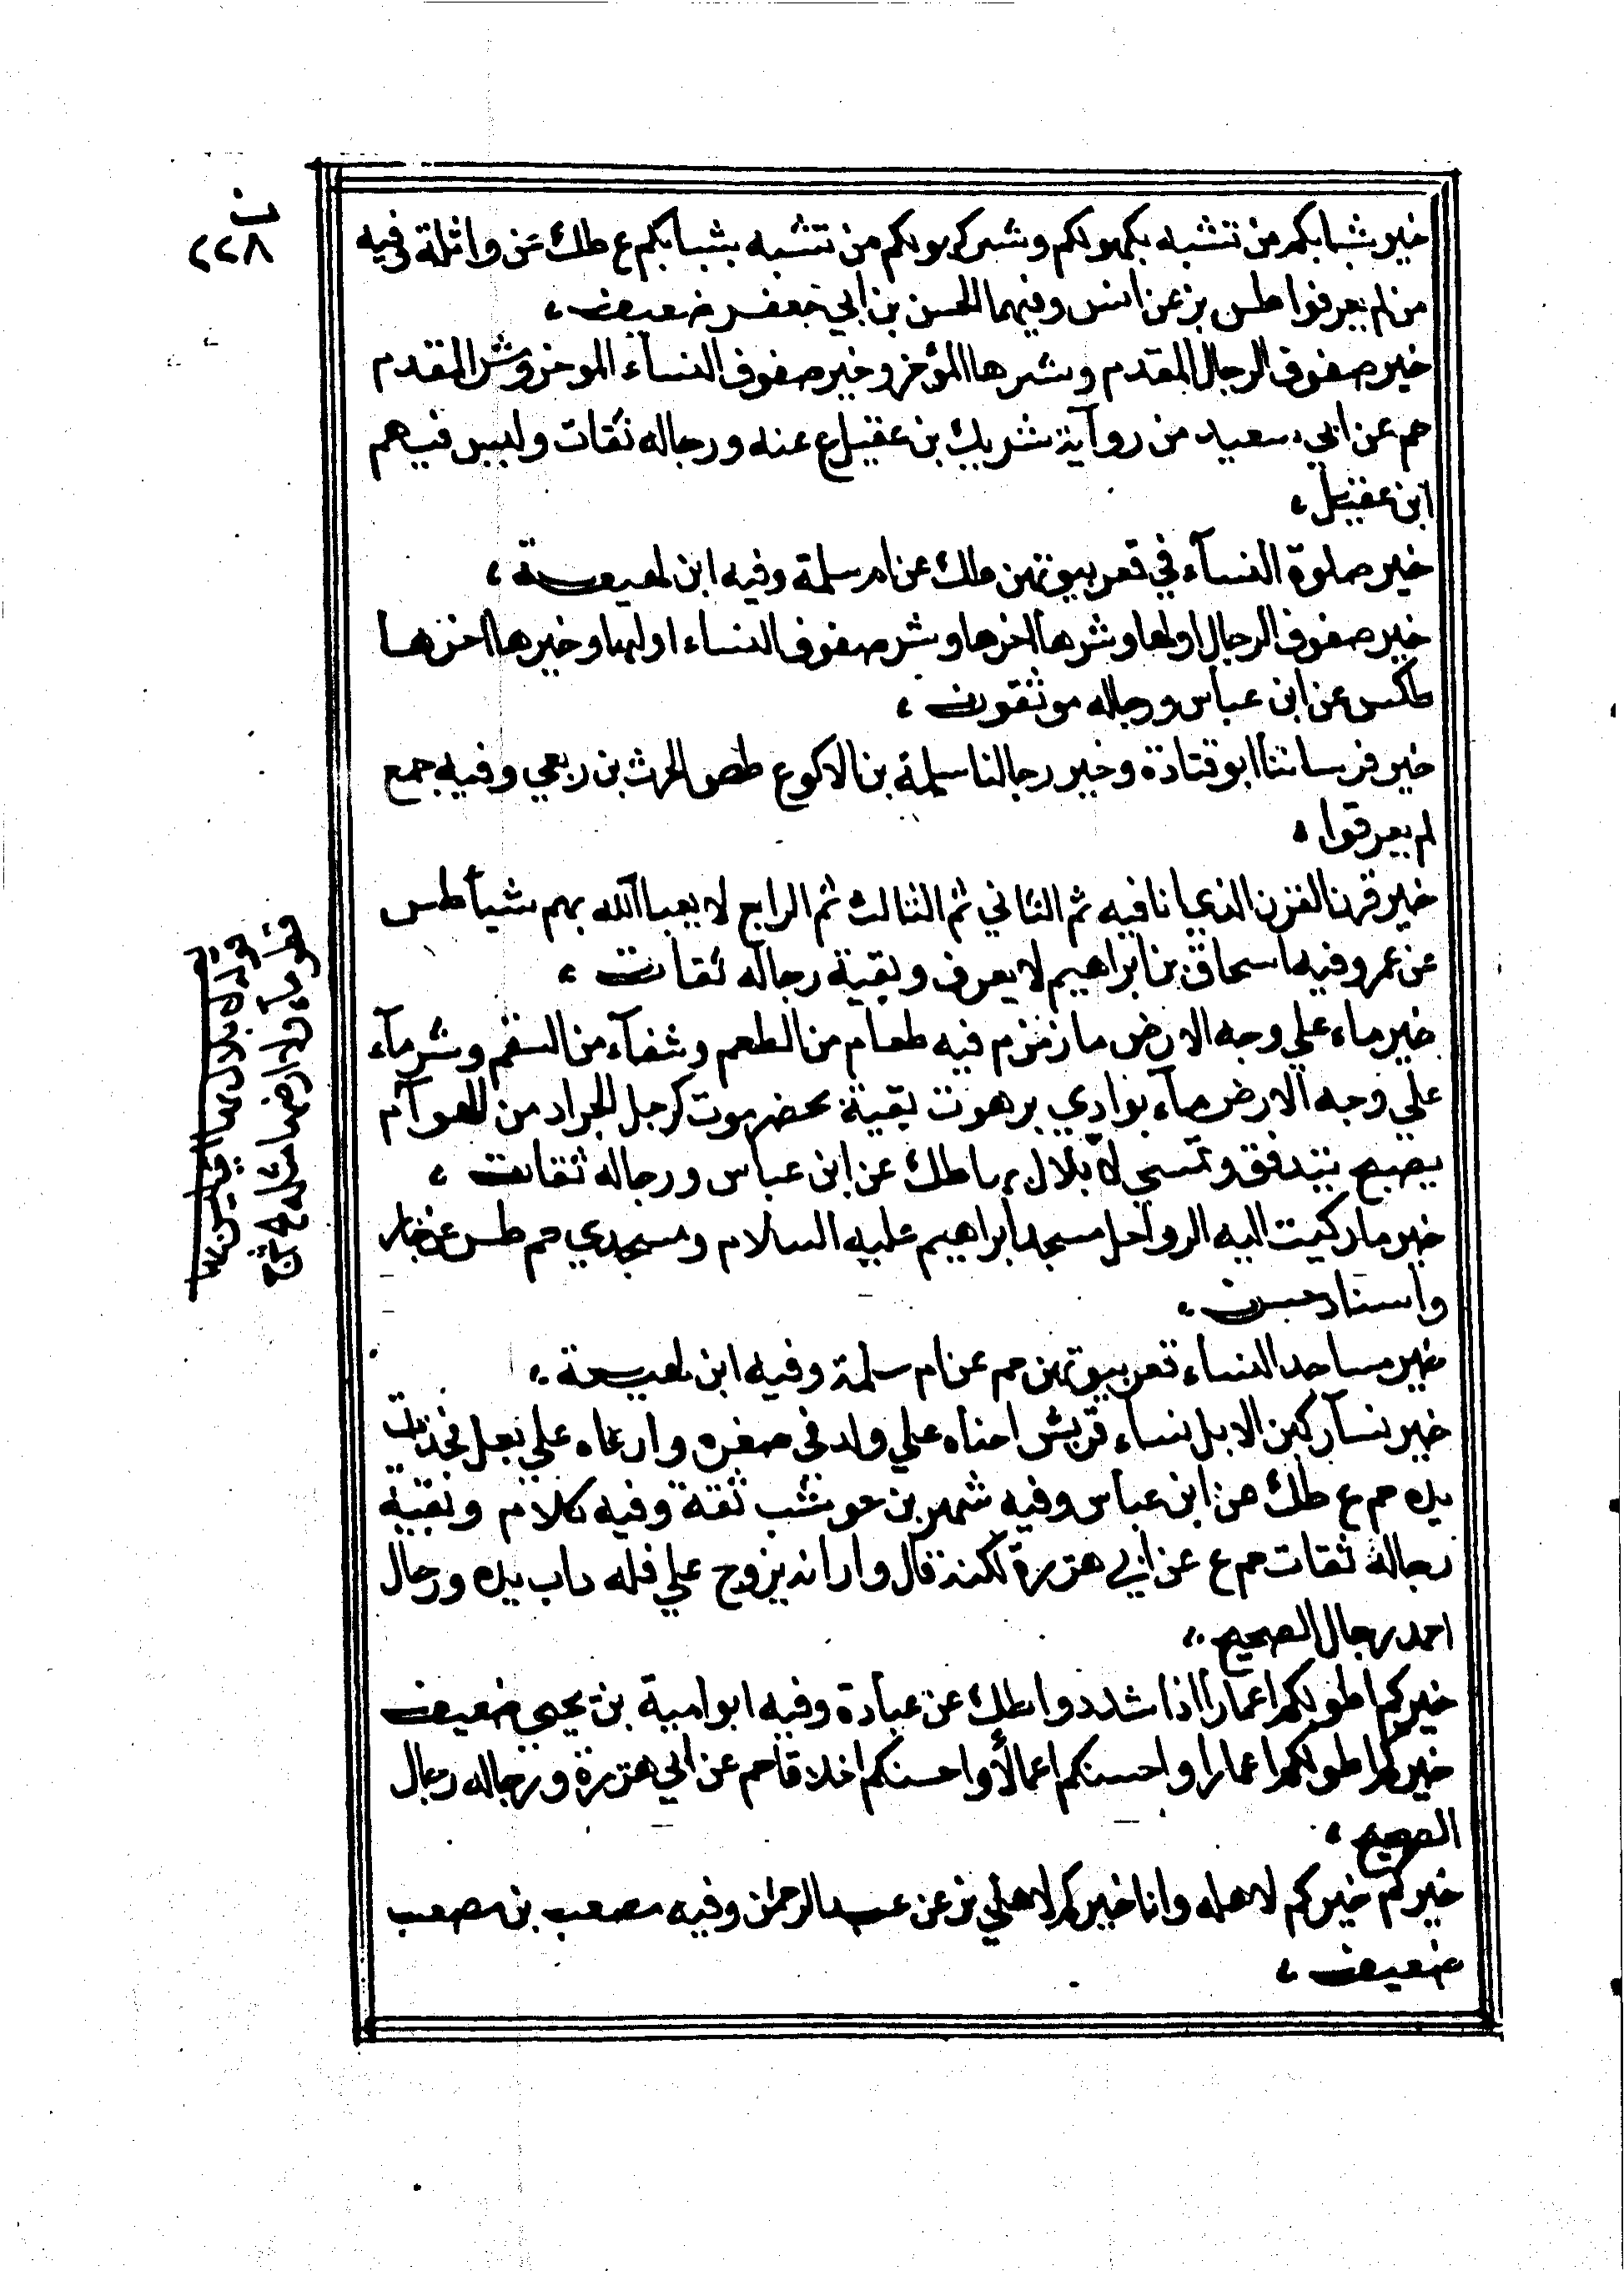 ن
٢٢٨
خير شبابكم من تشبه بكهولكم وشر كهولكم من تشبه بشبابكم ع طك عن واثلة وفيه
من لم يعرفوا طس بز عن انس وفيهما الحسن بن ابي جعفر ضعيف ،
خير صفوف الرجال المقدم وشرها المؤخر وخير صفوف النساء الموخر وشر المقدم
حم عن ابي سعيد من رواية شريك بن عقيل ع عنه ورجاله ثقات وليس فيهم
ابن عقيل ،
خير صلوة النسآء في قعر بيوتهن طك عن ام سلمة وفيه ابن لهيعة ،
خير صفوف الرجال اولها وشرها اخرها وشر صفوف النساء اولها وخيرها اخرها
طكس عن ابن عباس ورجاله موثقون ،
خير فرساننا ابو قتادة وخير رجالنا سلمة بن الاكوع طص الحرث بن ربعي وفيه جمع
لم يعرفوا ،
خير قرن القرن الذي انا فيه ثم الثاني ثم الثالث ثم الرابع لا يعبا الله بهم شيأ طس
عن عمر وفيه اسحاق بن ابراهيم لا يعرف وبقية رجاله ثقات ،
خير ماء علي وجه الارض ما زمزم فيه طعام من الطعم وشفآء من السقم وشر مآء
علي وجه الارض مآء بوادي برهوت بقية بحضرموت كرجل الجراد من الهوآم
يصبح يتدفق وتمسي لا بلال بها طك عن ابن عباس ورجاله ثقات ،
خير ما ركبت اليه الرواحل مسجد ابراهيم عليه السلام ومسجدي حم طس عن جابر
واسناد حسن ،
خير مساجد النساء قعر بيوتهن حم عن ام سلمة وفيه ابن لهيعة ،
خير نسآ ركبن الابل نساء قريش احناه علي ولد في صغره وارعاه علي بعل في ذات
يده حم ع طك عن ابن عباس وفيه شهر بن حوشب ثقة وفيه كلام وبقية
رجاله ثقات حم ع عن ابي هريرة لكنه قال وارانه يزوج علي قله داب يده ورجال
احمد رجال الصحيح ،
خيركم اطولكم اعمارا اذا شددوا طك عن عبادة وفيه ابو امية بن يحيي ضعيف
خيركم اطولكم اعمارا واحسنكم اعمالا واحسنكم اخلاقا حم عن ابي هريرة ورجاله رجال
الصحيح ،
خيركم خيركم لاهله وانا خيركم لاهلي بز عن عبد الرحمن وفيه مصعب بن مصعب
ضعيف ،
قوله بلال